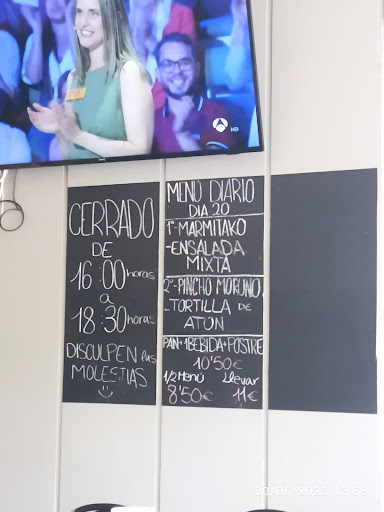 HD
CERRADO
DE
16:00 horas
a
18:30 horas
DISCULPEN las
MOLESTIAS
MENÚ DIARIO
DIA 20
1º-MARMITAKO
-ENSALADA
MIXTA
2º-PINCHO MORUNO
-TORTILLA DE
ATÚN
PAN+1BEBIDA+POSTRE
10'50€
1/2 Menú Llevar
8'50€ 11€